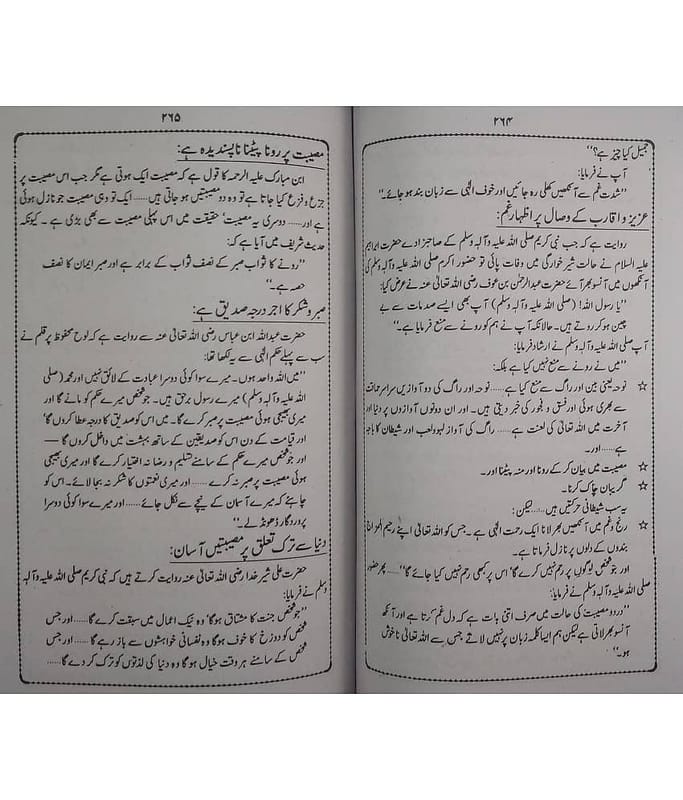 ۲۶۴
جمیل کیا چیز ہے؟‘‘
آپ نے فرمایا:
’’شدت غم سے آنکھیں کھلی رہ جائیں اور خوف الٰہی سے زبان بند ہو جائے۔‘‘
عزیز و اقارب کے وصال پر اظہار غم:
روایت ہے کہ جب نبی کریم صلی اللہ علیہ وآلہ وسلم کے صاحبزادے حضرت ابراہیم
علیہ السلام نے حالت شیر خوارگی میں وفات پائی تو حضور اکرم صلی اللہ علیہ وآلہ وسلم کی
آنکھوں میں آنسو بھر آئے حضرت عبدالرحمٰن بن عوف رضی اللہ تعالیٰ عنہ نے عرض کیا:
’’یا رسول اللہ! (صلی اللہ علیہ وآلہ وسلم) آپ بھی ایسے صدمات سے بے
چین ہو کر روتے ہیں۔ حالانکہ آپ نے ہم کو رونے سے منع فرمایا ہے۔‘‘
آپ صلی اللہ علیہ وآلہ وسلم نے ارشاد فرمایا:
’’میں نے رونے سے منع نہیں کیا ہے بلکہ:
☆ نوحہ یعنی بین اور راگ سے منع کیا ہے...... نوحہ اور راگ کی دو آوازیں سراسر حماقت
سے بھری ہوئی اور فسق و فجور کی خبر دیتی ہیں۔ اور ان دونوں آوازوں پر دنیا اور
آخرت میں اللہ تعالیٰ کی لعنت ہے...... راگ کی آواز لہو و لعب اور شیطان کا باجہ
ہے......اور۔
☆ مصیبت میں بیان کر کے رونا اور منہ پیٹنا اور۔
☆ گریبان چاک کرنا۔
یہ سب شیطانی حرکتیں ہیں......لیکن:
☆ رنج و غم میں آنکھیں بھر لانا ایک رحمت الٰہی ہے۔ جس کو اللہ تعالیٰ اپنے رحیم المزاج
بندوں کے دلوں پر نازل فرماتا ہے۔
اور جو شخص لوگوں پر رحم نہیں کرے گا‘ اس پر کبھی رحم نہیں کیا جائے گا‘‘...... پھر حضور
صلی اللہ علیہ وآلہ وسلم نے فرمایا:
’’درد و مصیبت کی حالت میں صرف اتنی بات ہے کہ دل غم کرتا ہے اور آنکھ
آنسو بھر لاتی ہے لیکن ہم ایسا کلمہ زبان پر نہیں لاتے جس سے اللہ تعالیٰ ناخوش
ہو۔‘‘
۲۶۵
مصیبت پر رونا پیٹنا ناپسندیدہ ہے:
ابن مبارک علیہ الرحمہ کا قول ہے کہ مصیبت ایک ہوتی ہے مگر جب اس مصیبت پر
جزع و فزع کیا جاتا ہے تو وہ دو مصیبتیں ہو جاتی ہیں...... ایک تو وہی مصیبت جو نازل ہوئی
ہے اور...... دوسری یہ مصیبت‘ حقیقت میں اس پہلی مصیبت سے بھی بڑی ہے۔ کیونکہ
حدیث شریف میں آیا ہے کہ:
’’رونے کا ثواب صبر کے نصف ثواب کے برابر ہے اور صبر ایمان کا نصف
حصہ ہے۔‘‘
صبر و شکر کا اجر درجہ صدیق ہے:
حضرت عبداللہ ابن عباس رضی اللہ تعالیٰ عنہ سے روایت ہے کہ لوح محفوظ پر قلم نے
سب سے پہلے حکم الٰہی سے یہ لکھا تھا:
’’میں اللہ واحد ہوں۔ میرے سوا کوئی دوسرا عبادت کے لائق نہیں اور محمد (صلی
اللہ علیہ وآلہ وسلم) میرے رسول برحق ہیں۔ جو شخص میرے حکم کو مانے گا اور
میری بھیجی ہوئی مصیبت پر صبر کرے گا۔ میں اس کو صدیق کا درجہ عطا کروں گا‘
اور قیامت کے دن اس کو صدیقین کے ساتھ بہشت میں داخل کروں گا —
اور جو شخص میرے حکم کے سامنے تسلیم و رضا نہ اختیار کرے گا اور میری بھیجی
ہوئی مصیبت پر صبر نہ کرے...... اور میری نعمتوں کا شکر نہ بجا لائے۔ اس کو
چاہئے کہ میرے آسمان کے نیچے سے نکل جائے...... اور میرے سوا کوئی دوسرا
پروردگار ڈھونڈ لے۔‘‘
دنیا سے ترک تعلق پر مصیبتیں آسان:
حضرت علی شیر خدا رضی اللہ تعالیٰ عنہ روایت کرتے ہیں کہ نبی کریم صلی اللہ علیہ وآلہ
وسلم نے فرمایا:
’’جو شخص جنت کا مشتاق ہو گا‘ وہ نیک اعمال میں سبقت کرے گا...... اور جس
شخص کو دوزخ کا خوف ہو گا وہ نفسانی خواہشوں سے باز رہے گا...... اور جس
شخص کے سامنے ہر وقت خیال ہو گا وہ دنیا کی لذتوں کو ترک کر دے گا......